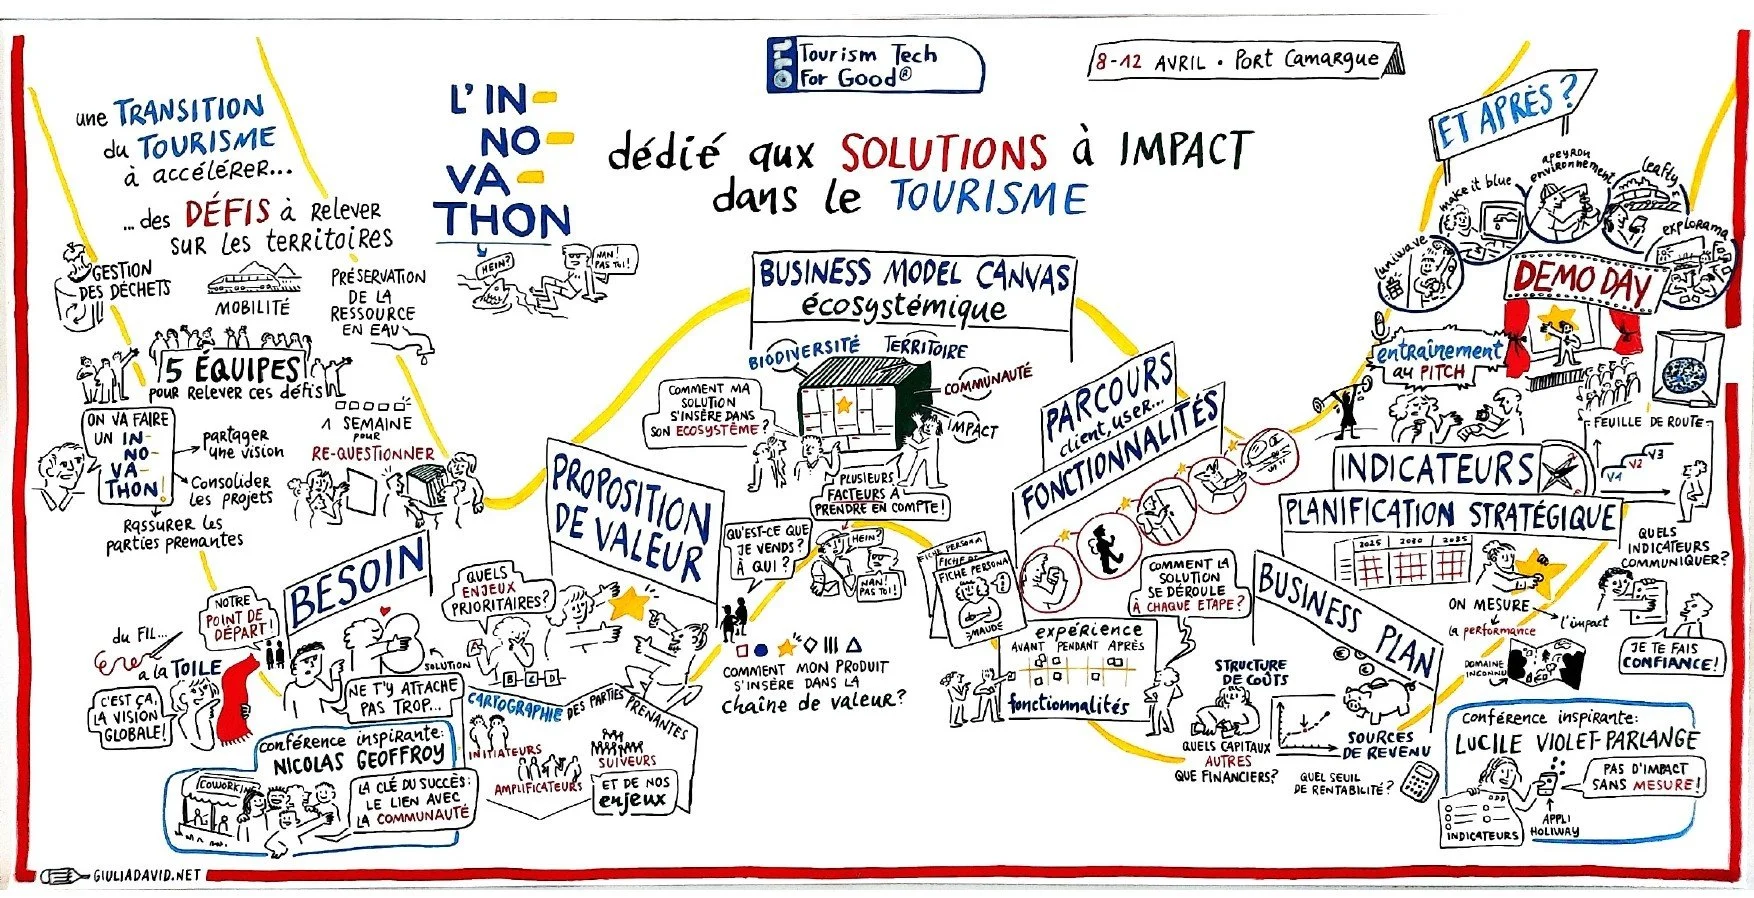 Tourism Tech
For Good®
8-12 AVRIL • PORT CAMARGUE
une TRANSITION
du TOURISME
à accélérer...
...des DÉFIS à relever
sur les territoires
L'IN-
NO-
VA-
THON
dédié aux SOLUTIONS à IMPACT
dans le TOURISME
HEIN?
NAN!
PAS TOI!
GESTION
DES DÉCHETS
MOBILITÉ
PRÉSERVATION
DE LA
RESSOURCE
EN EAU
5 ÉQUIPES
pour relever ces défis
ON VA FAIRE
UN IN-
NO-
VA-
THON!
partager
une vision
Consolider
les projets
Rassurer les
parties prenantes
1 SEMAINE
pour
RE-QUESTIONNER
BESOIN
NOTRE
POINT DE
DÉPART!
du FIL...
à la TOILE
C'EST ÇA,
LA VISION
GLOBALE!
SOLUTION
NE T'Y ATTACHE
PAS TROP...
conférence inspirante:
NICOLAS GEOFFROY
COWORKING
LA CLÉ DU SUCCÈS:
LE LIEN AVEC
LA COMMUNAUTÉ
PROPOSITION
DE VALEUR
QUELS
ENJEUX
PRIORITAIRES?
A
B
C
D
CARTOGRAPHIE DES PARTIES PRENANTES
INITIATEURS
AMPLIFICATEURS
SUIVEURS
ET DE NOS
enjeux
BUSINESS MODEL CANVAS
écosystémique
BIODIVERSITÉ
TERRITOIRE
COMMUNAUTÉ
IMPACT
COMMENT MA
SOLUTION
S'INSÈRE DANS
SON ECOSYSTÈME?
PLUSIEURS
FACTEURS À
PRENDRE EN COMPTE!
QU'EST-CE QUE
JE VENDS?
À QUI?
HEIN?
NAN!
PAS TOI!
COMMENT MON PRODUIT
S'INSÈRE DANS LA
chaîne de valeur?
PARCOURS
client, user...
FONCTIONNALITÉS
FICHE PERSONA
FICHE DE
FICHE PERSONA
MAUDE
COMMENT LA
SOLUTION
SE DÉROULE
À CHAQUE ETAPE?
expérience
AVANT PENDANT APRÈS
fonctionnalités
BUSINESS PLAN
STRUCTURE
DE COÛTS
QUELS CAPITAUX
AUTRES
QUE FINANCIERS?
SOURCES
DE REVENU
QUEL SEUIL
DE RENTABILITÉ?
ET APRÈS?
unwave
make it blue
apeyron
environnement
leafty
explorama
DEMO DAY
entraînement
au PITCH
FEUILLE DE ROUTE
V1
V2
V3
INDICATEURS
PLANIFICATION STRATÉGIQUE
2025 2030 2035
QUELS
INDICATEURS
COMMUNIQUER?
ON MESURE
la performance
l'impact
DOMAINE
INCONNU
JE TE FAIS
CONFIANCE!
Conférence inspirante:
LUCILE VIOLET-PARLANGE
PAS D'IMPACT
SANS MESURE!
INDICATEURS
APPLI
HOLIWAY
GIULIADAVID.NET